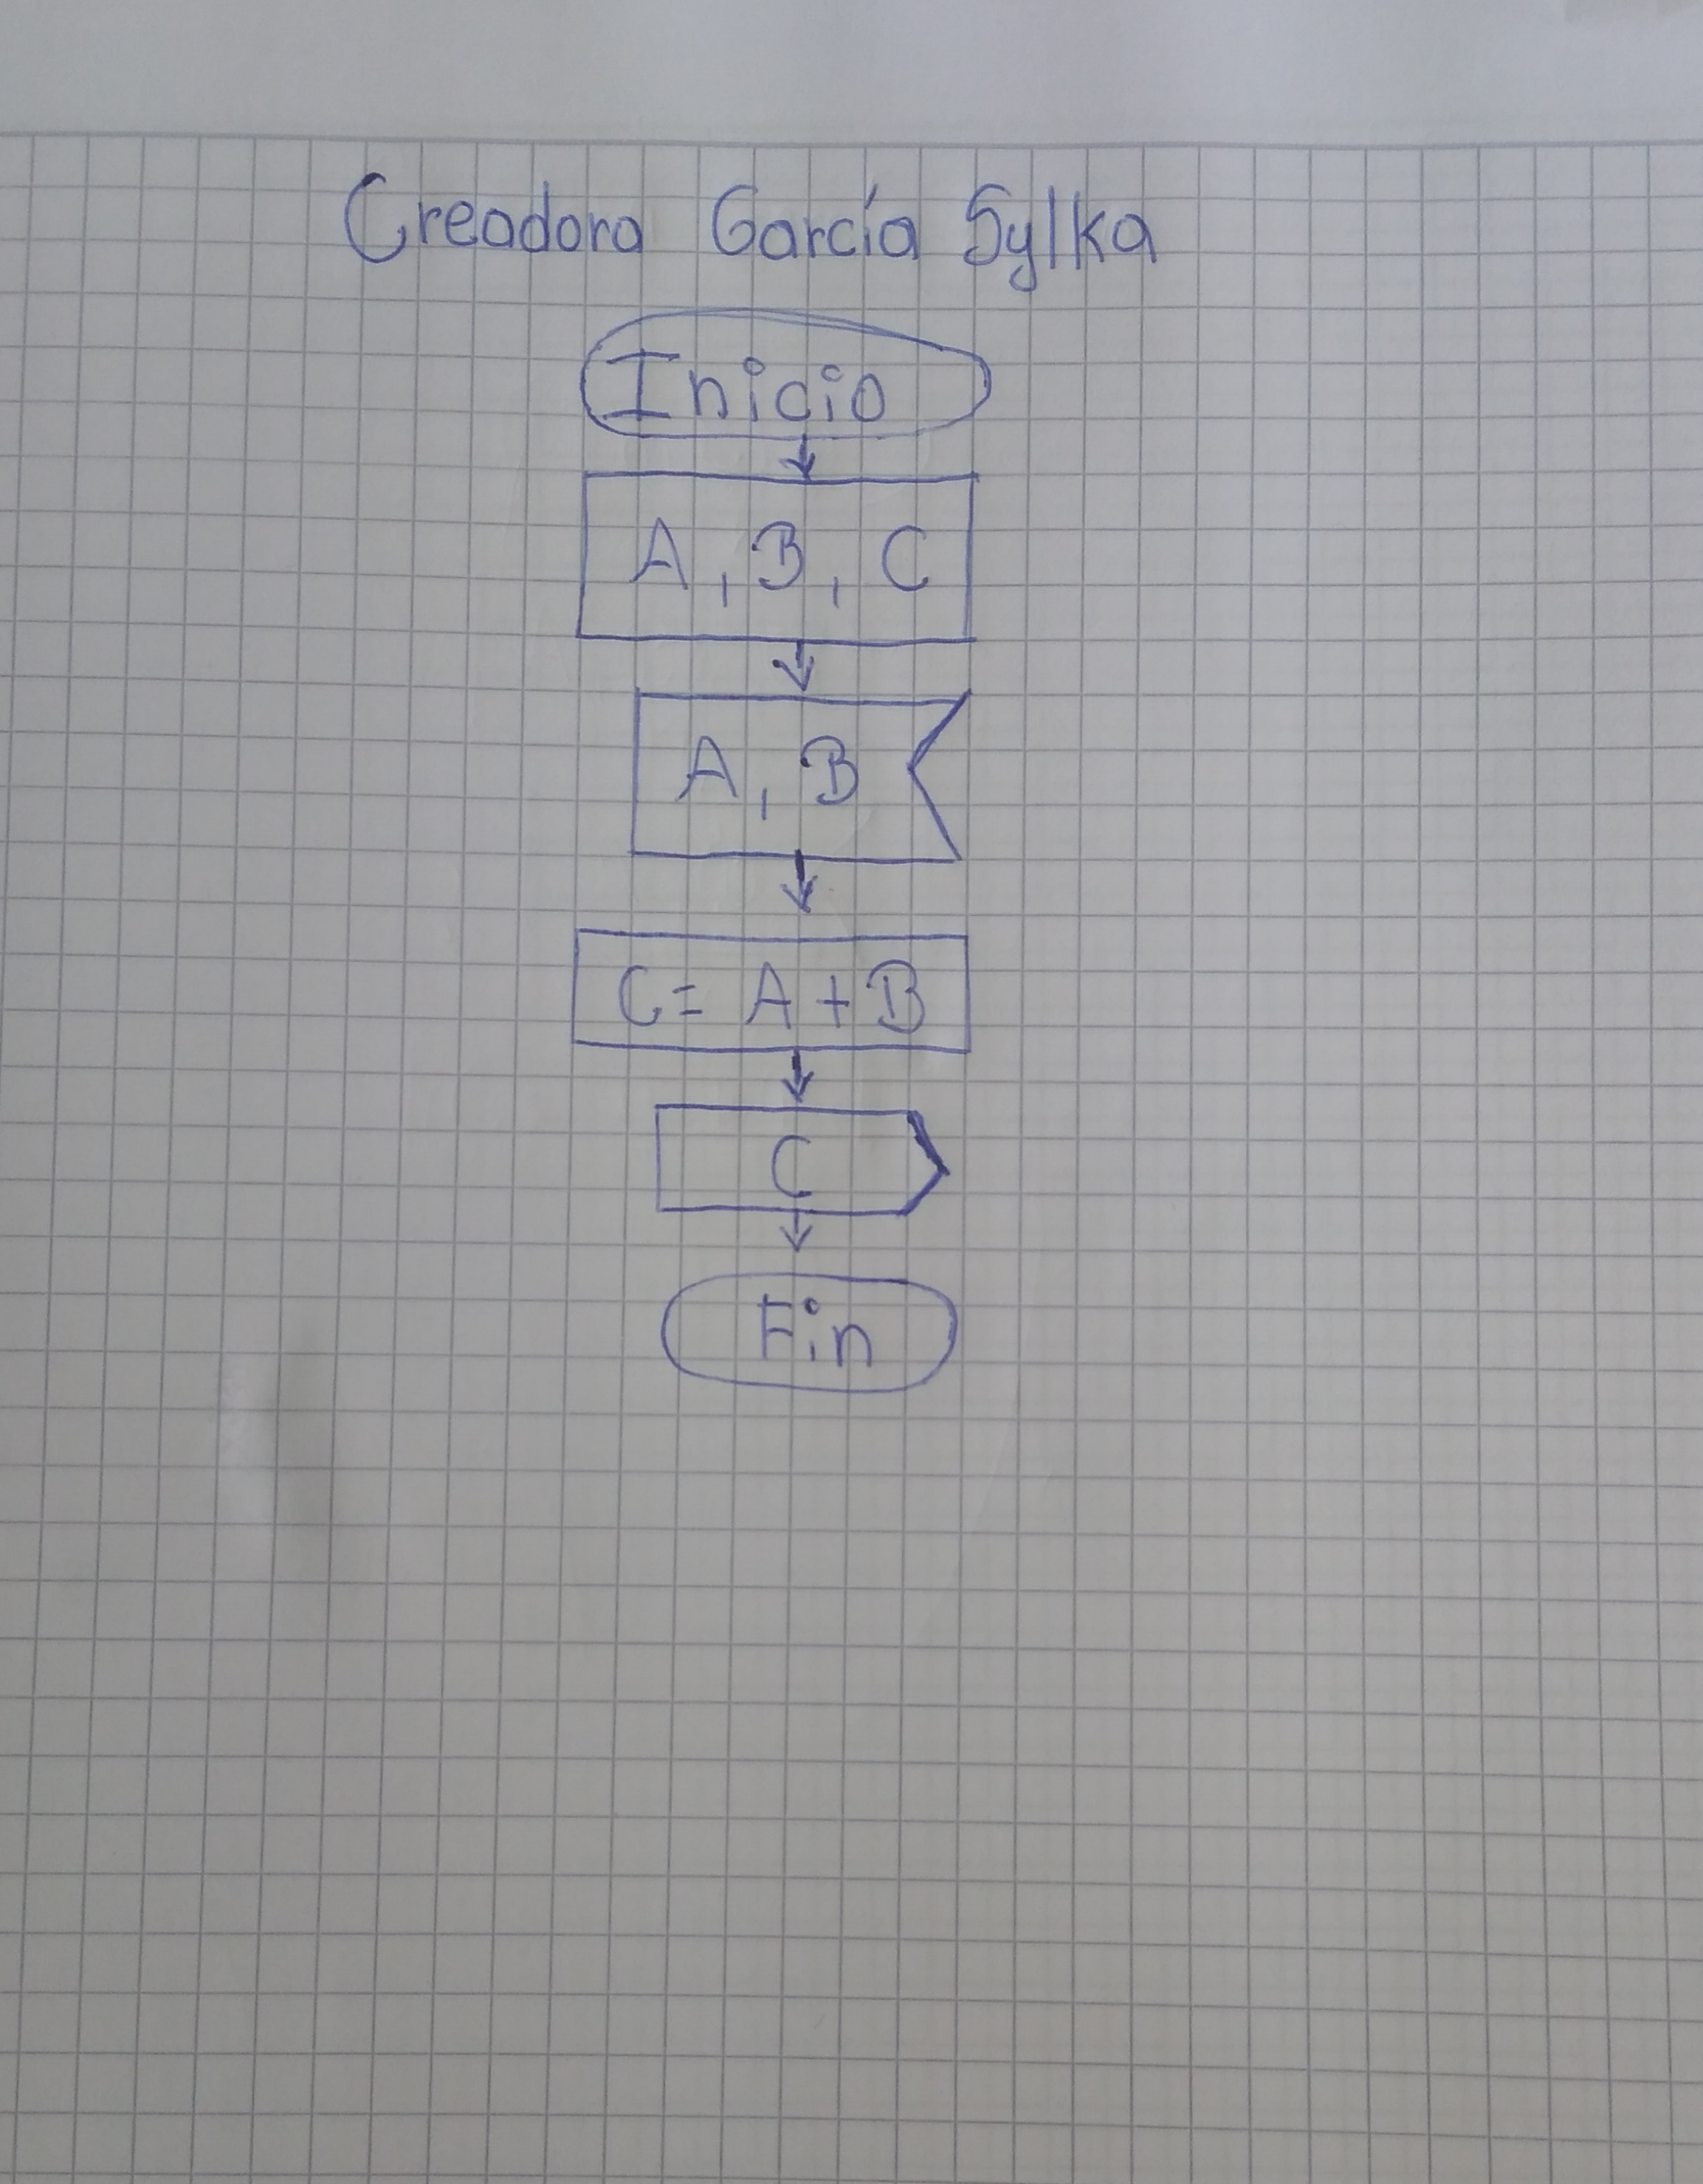 Creadora García Sylka
Inicio
A, B, C
A, B
C= A + B
C
Fin